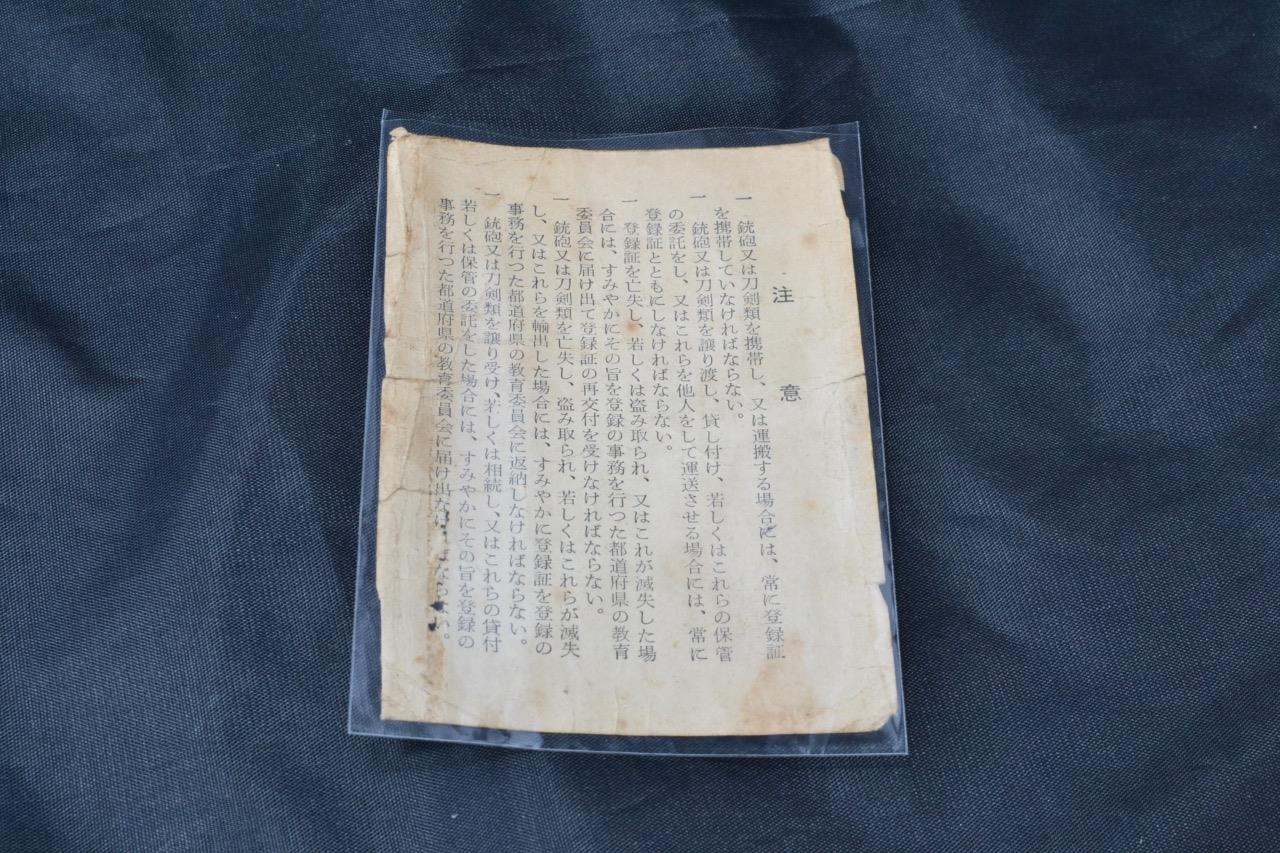 注意
一　銃砲又は刀剣類を携帯し、又は運搬する場合には、常に登録証
を携帯していなければならない。
一　銃砲又は刀剣類を譲り渡し、貸し付け、若しくはこれらの保管
の委託をし、又はこれらを他人をして運送させる場合には、常に
登録証とともにしなければならない。
一　登録証を亡失し、若しくは盗み取られ、又はこれが滅失した場
合には、すみやかにその旨を登録の事務を行つた都道府県の教育
委員会に届け出て登録証の再交付を受けなければならない。
一　銃砲又は刀剣類を亡失し、盗み取られ、若しくはこれらが滅失
し、又はこれらを輸出した場合には、すみやかに登録証を登録の
事務を行つた都道府県の教育委員会に返納しなければならない。
一　銃砲又は刀剣類を譲り受け、若しくは相続し、又はこれらの貸付
若しくは保管の委託をした場合には、すみやかにその旨を登録の
事務を行つた都道府県の教育委員会に届け出なければならない。